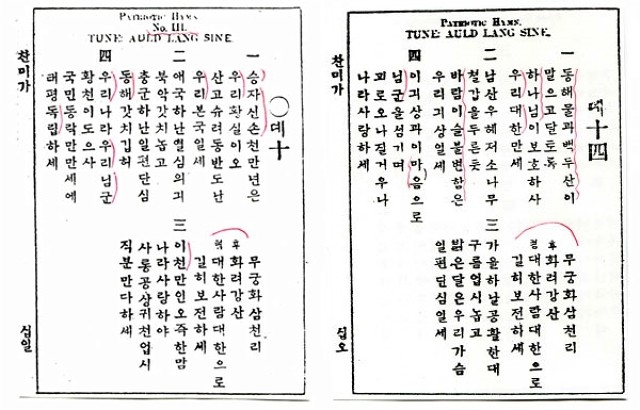 PATRIOTIC HYMN.
No. III.
TUNE: AULD LANG SINE.
〇뎨十
一
승자신손천만년은
우리황실이오
산고슈려동반도난
우리본국일세
후렴
무궁화삼천리
화려강산
대한사람대한으로
길히보전하세
二
애국하난렬심의긔
북악갓치놉고
츙군하난일편단심
동해갓치깁허
三
이천만인오즉한맘
나라사랑하야
사롱공샹귀천업시
직분만다하세
四
우리나라우리님군
황천이도으사
국민동락만만세에
태평독립하세
찬미가
십일
PATRIOTIC HYMN.
TUNE: AULD LANG SINE.
뎨十四
一
동해물과백두산이
말으고달토록
하나님이보호하사
우리대한만세
후렴
무궁화삼천리
화려강산
대한사람대한으로
길히보전하세
二
남산우헤저소나무
철갑을두른듯
바람이슬불변함은
우리긔상일세
三
가을하날공활한대
구름업시놉고
밝은달은우리가슴
일편단심일세
四
이긔상과이마음으로
님군을섬기며
괴로오나질거우나
나라사랑하세
찬미가
십오